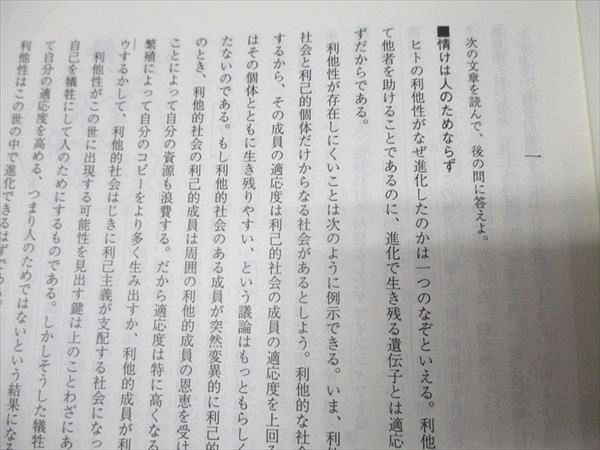 一
次の文章を読んで、後の問に答えよ。
■情けは人のためならず
ヒトの利他性がなぜ進化したのかは一つのなぞといえる。利他
て他者を助けることであるのに、進化で生き残る遺伝子とは適応
ずだからである。
利他性が存在しにくいことは次のように例示できる。いま、利他
社会と利己的個体だけからなる社会があるとしよう。利他的な社会
するから、その成員の適応度は利己的社会の成員の適応度を上回る
はその個体とともに生き残りやすい、という議論はもっともらしく
たないのである。もし利他的社会のある成員が突然変異的に利己的
のとき、利他的社会の利己的成員は周囲の利他的成員の恩恵を受け
ことによって自分の資源も浪費する。だから適応度は特に高くなる
繁殖によって自分のコピーをより多く生み出すか、利他的成員が利
ウするかして、利他的社会はじきに利己主義が支配する社会になっ
利他性がこの世に出現する可能性を見出す鍵は上のことわざにあ
自己を犠牲にして人のためにするものである。しかしそうした犠牲
て自分の適応度を高める、つまり人のためではないという結果になる
利他性はこの世の中で進化できるはずである